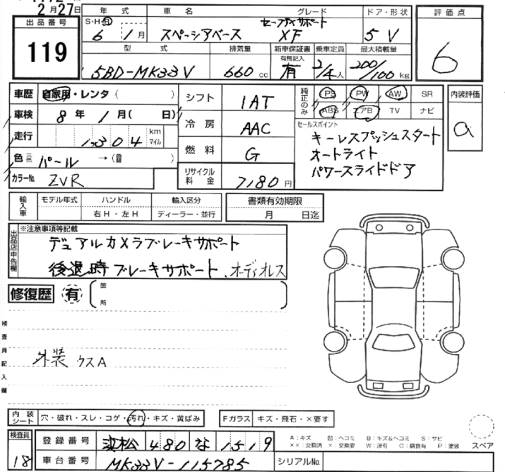 2月27日
出品番号 119
年式 車名 グレード ドア・形状
セーフティサポート
6 1月 スペーシアベース XF 5V
型式 排気量 新車保証書 乗車定員 最大積載量
有無記入
5BD-MK33V 660cc 有 2/4人 200/100kg
評価点
6
車歴 自家用・レンタ( )
シフト 1AT
純正のみ PS PW AW SR
ABS エアB TV ナビ
内装評価
a
車検 8年1月(日)
冷房 AAC
セールスポイント
キーレスプッシュスタート
オートライト
パワースライドドア
走行 1304 km マイル
燃料 G
色 パール →( )
カラーNo. ZVR
リサイクル料金 7180円
輸入車 モデル年式 ハンドル 輸入区分
年 右H・左H ディーラー・並行
書類有効期限
月 日迄
出品店申告欄
※注意事項等記載
デュアルカメラブレーキサポート
後退時ブレーキサポート、オーディオレス
修復歴 有 箇所
検査員記入欄
外装 ウスA
内装シート 穴・破れ・スレ・コゲ・汚れ・キズ・黄ばみ
Fガラス キズ・飛石・×要す
A:キズ
スペア
検査員 18
登録番号 浜松 480 な 1519
車台番号 MK33V-115785
シリアルNo.